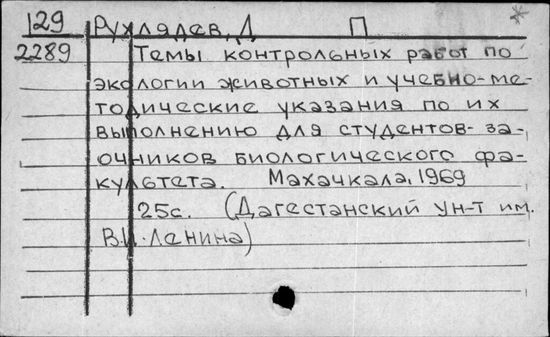 129 Рухлядев, Д П *
2289 Темы контрольных работ по
экологии животных и учебно-ме-
тодические указания по их
выполнению для студентов-за-
очников биологического фа-
культета. Махачкала, 1969
25с. (Дагестанский ун-т им.
В.И. Ленина)